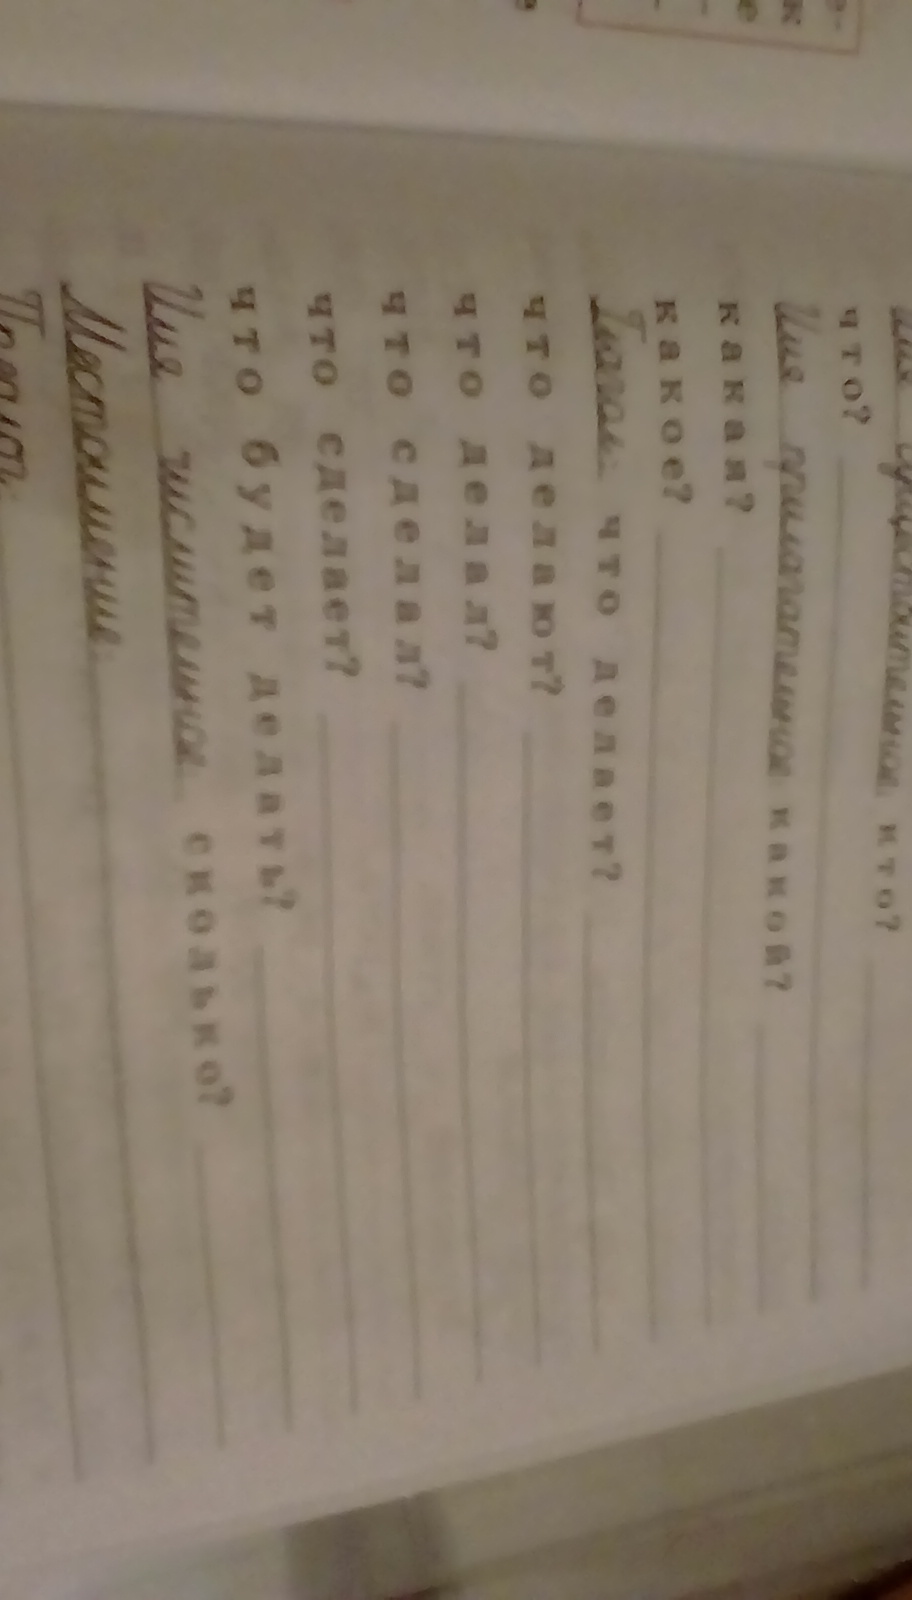 Имя существительное: кто?
что?
Имя прилагательное: какой?
какая?
какое?
Глагол: что делает?
что делают?
что делал?
что сделал?
что сделает?
что будет делать?
Имя числительное: сколько?
Местоимение:
Предлог: